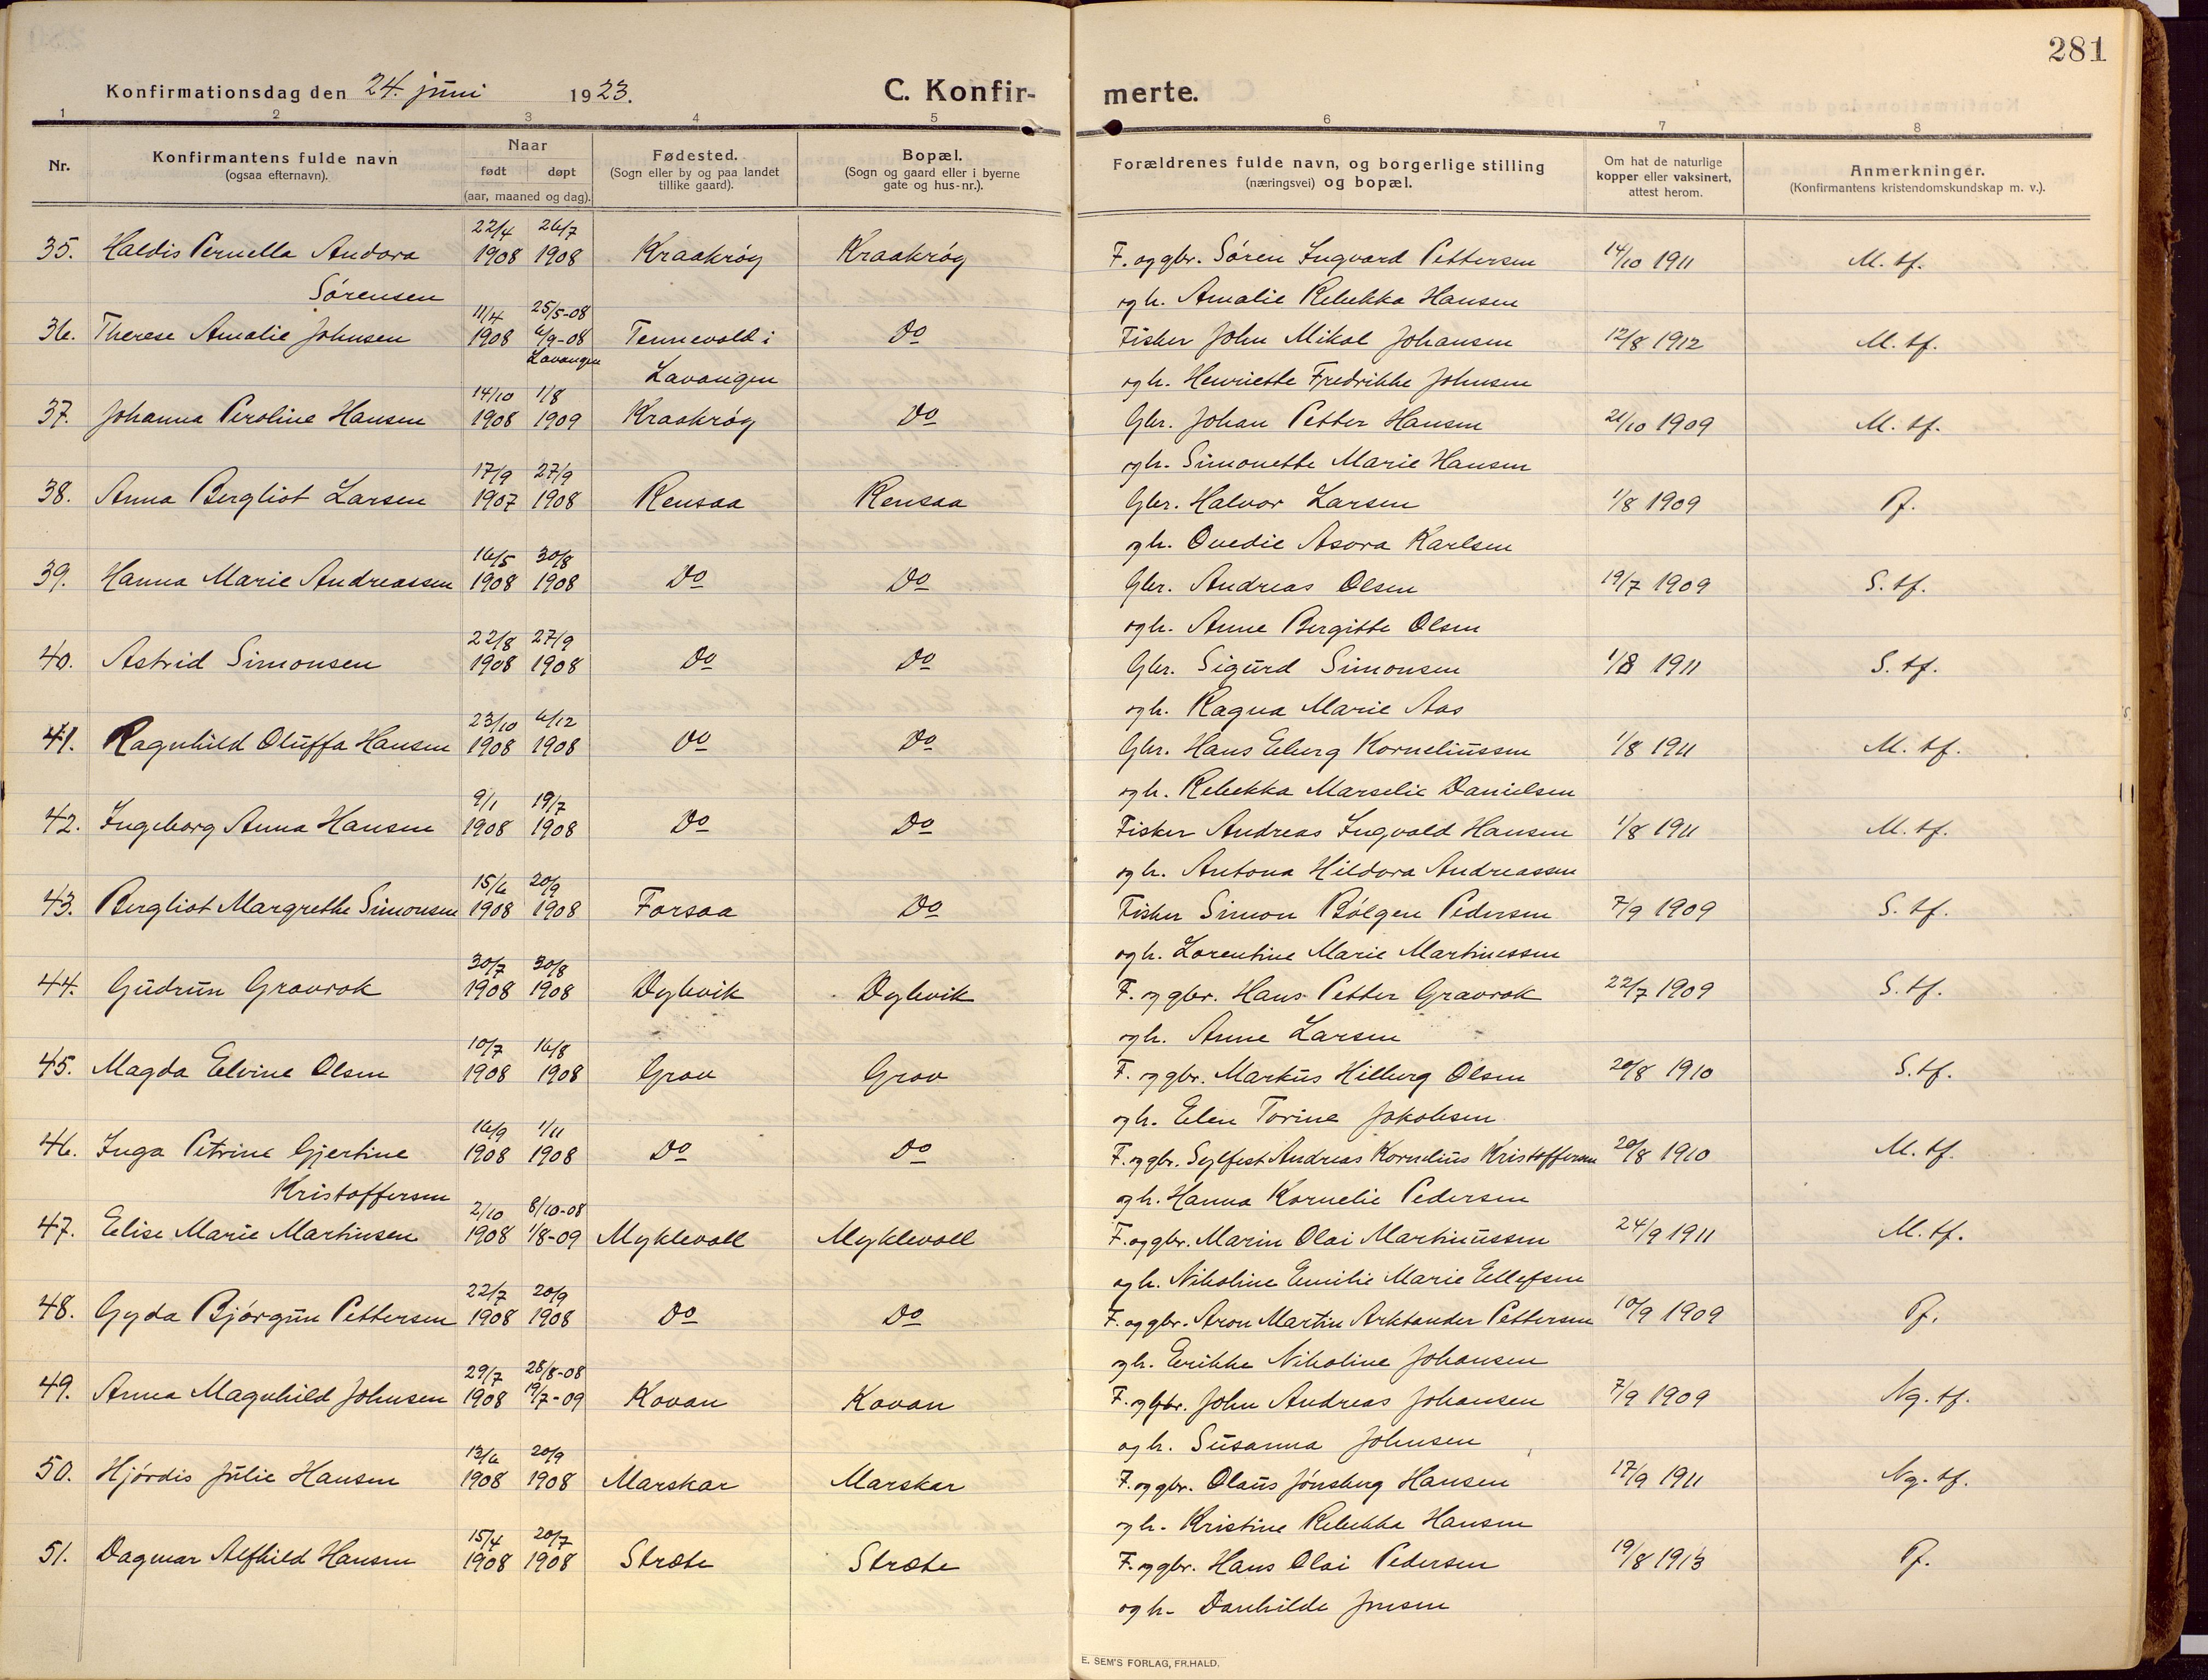 281
Konfirmationsdag den 24. juni 1923. C. Konfirmerte.
1 2 3 4 5 6 7 8
Nr.
Konfirmantens fulde navn
(ogsaa efternavn).
Naar
født døpt
(aar, maaned og dag).
Fødested.
(Sogn eller by og paa landet
tillike gaard).
Bopæl.
(Sogn og gaard eller i byerne
gate og hus-nr.).
Forældrenes fulde navn, og borgerlige stilling
(næringsvei) og bopæl.
Om hat de naturlige
kopper eller vaksinert,
attest herom.
Anmerkninger.
(Konfirmantens kristendomskundskap m. v.).
22/4 26/7
35. Haldis Pernella Andora 1908 1908 Kraakrøy Kraakrøy F. og gbr. Søren Ingvard Pettersen 14/10 1911 M. tf.
Sørensen og h. Amalie Rebekka Hansen
11/4 25/5-08
36. Therese Amalie Johnsen 1908 6/9-08 Tennevold i Do Fisker John Mikal Johansen 12/8 1912 M. tf.
Lavangen Lavangen og h. Henriette Fredrikke Johnsen
14/10 1/8
37. Johanna Peroline Hansen 1908 1909 Kraakrøy Do Gbr. Johan Petter Hansen 21/10 1909 M. tf.
og h. Simonette Marie Hansen
17/9 27/9
38. Anna Bergliot Larsen 1907 1908 Rensaa Rensaa Gbr. Halvor Larsen 1/8 1909 P.
og h. Ovedie Asora Karlsen
16/5 30/8
39. Hanna Marie Andreassen 1908 1908 Do Do Gbr. Andreas Olsen 19/7 1909 S. tf.
og h. Anne Bergitte Olsen
22/8 27/9
40. Astrid Simonsen 1908 1908 Do Do Gbr. Sigurd Simonsen 1/8 1911 S. tf.
og h. Ragna Marie Aas
23/10 6/12
41. Ragnhild Oluffa Hansen 1908 1908 Do Do Gbr. Hans Eberg Korneliussen 1/8 1911 M. tf.
og h. Rebekka Marselie Danielsen
9/1 19/7
42. Ingeborg Anna Hansen 1908 1908 Do Do Fisker Andreas Ingvald Hansen 1/8 1911 M. tf.
og h. Antona Hildora Andreassen
15/6 20/9
43. Bergliot Margrethe Simonsen 1908 1908 Forsaa Do Fisker Simon Bølgen Pedersen 7/9 1909 S. tf.
og h. Lorentine Marie Martinessen
30/7 30/8
44. Gudrun Gravrok 1908 1908 Dybvik Dybvik F. og gbr. Hans Petter Gravrok 22/7 1909 S. tf.
og h. Anne Larsen
10/7 16/8
45. Magda Elvine Olsen 1908 1908 Grov Grov F. og gbr. Markus Hilberg Olsen 20/8 1910 S. tf.
og h. Elen Torine Jakobsen
16/9 1/11
46. Inga Petrine Gjertine 1908 1908 Do Do F. og gbr. Sylfest Andreas Kornelius Kristoffersen 20/8 1910 M. tf.
Kristoffersen og h. Hanna Kornelie Pedersen
2/10 8/10-08
47. Elise Marie Martinsen 1908 1/8-09 Myklevoll Myklevoll F. og gbr. Marin Olai Martinussen 24/9 1911 M. tf.
og h. Nikoline Emilie Marie Ellefsen
22/7 20/9
48. Gyda Bjørgun Pettersen 1908 1908 Do Do F. og gbr. Aron Martin Arktander Pettersen 10/9 1909 P.
og h. Erikke Nikoline Johansen
29/7 28/8-08
49. Anna Magnhild Johnsen 1908 19/7-09 Kovan Kovan F. og gbr. John Andreas Johansen 7/9 1909 Ng. tf.
og h. Susanna Johnsen
13/6 20/9
50. Hjørdis Julie Hansen 1908 1908 Marskar Marskar F. og gbr. Olaus Jønsberg Hansen 17/9 1911 Ng. tf.
og h. Kristine Rebekka Hansen
15/4 20/7
51. Dagmar Alfhild Hansen 1908 1908 Stræte Stræte F. og gbr. Hans Olai Pedersen 19/8 1913 P.
og h. Danhilde Jensen
E. SEM'S FORLAG, FR.HALD.